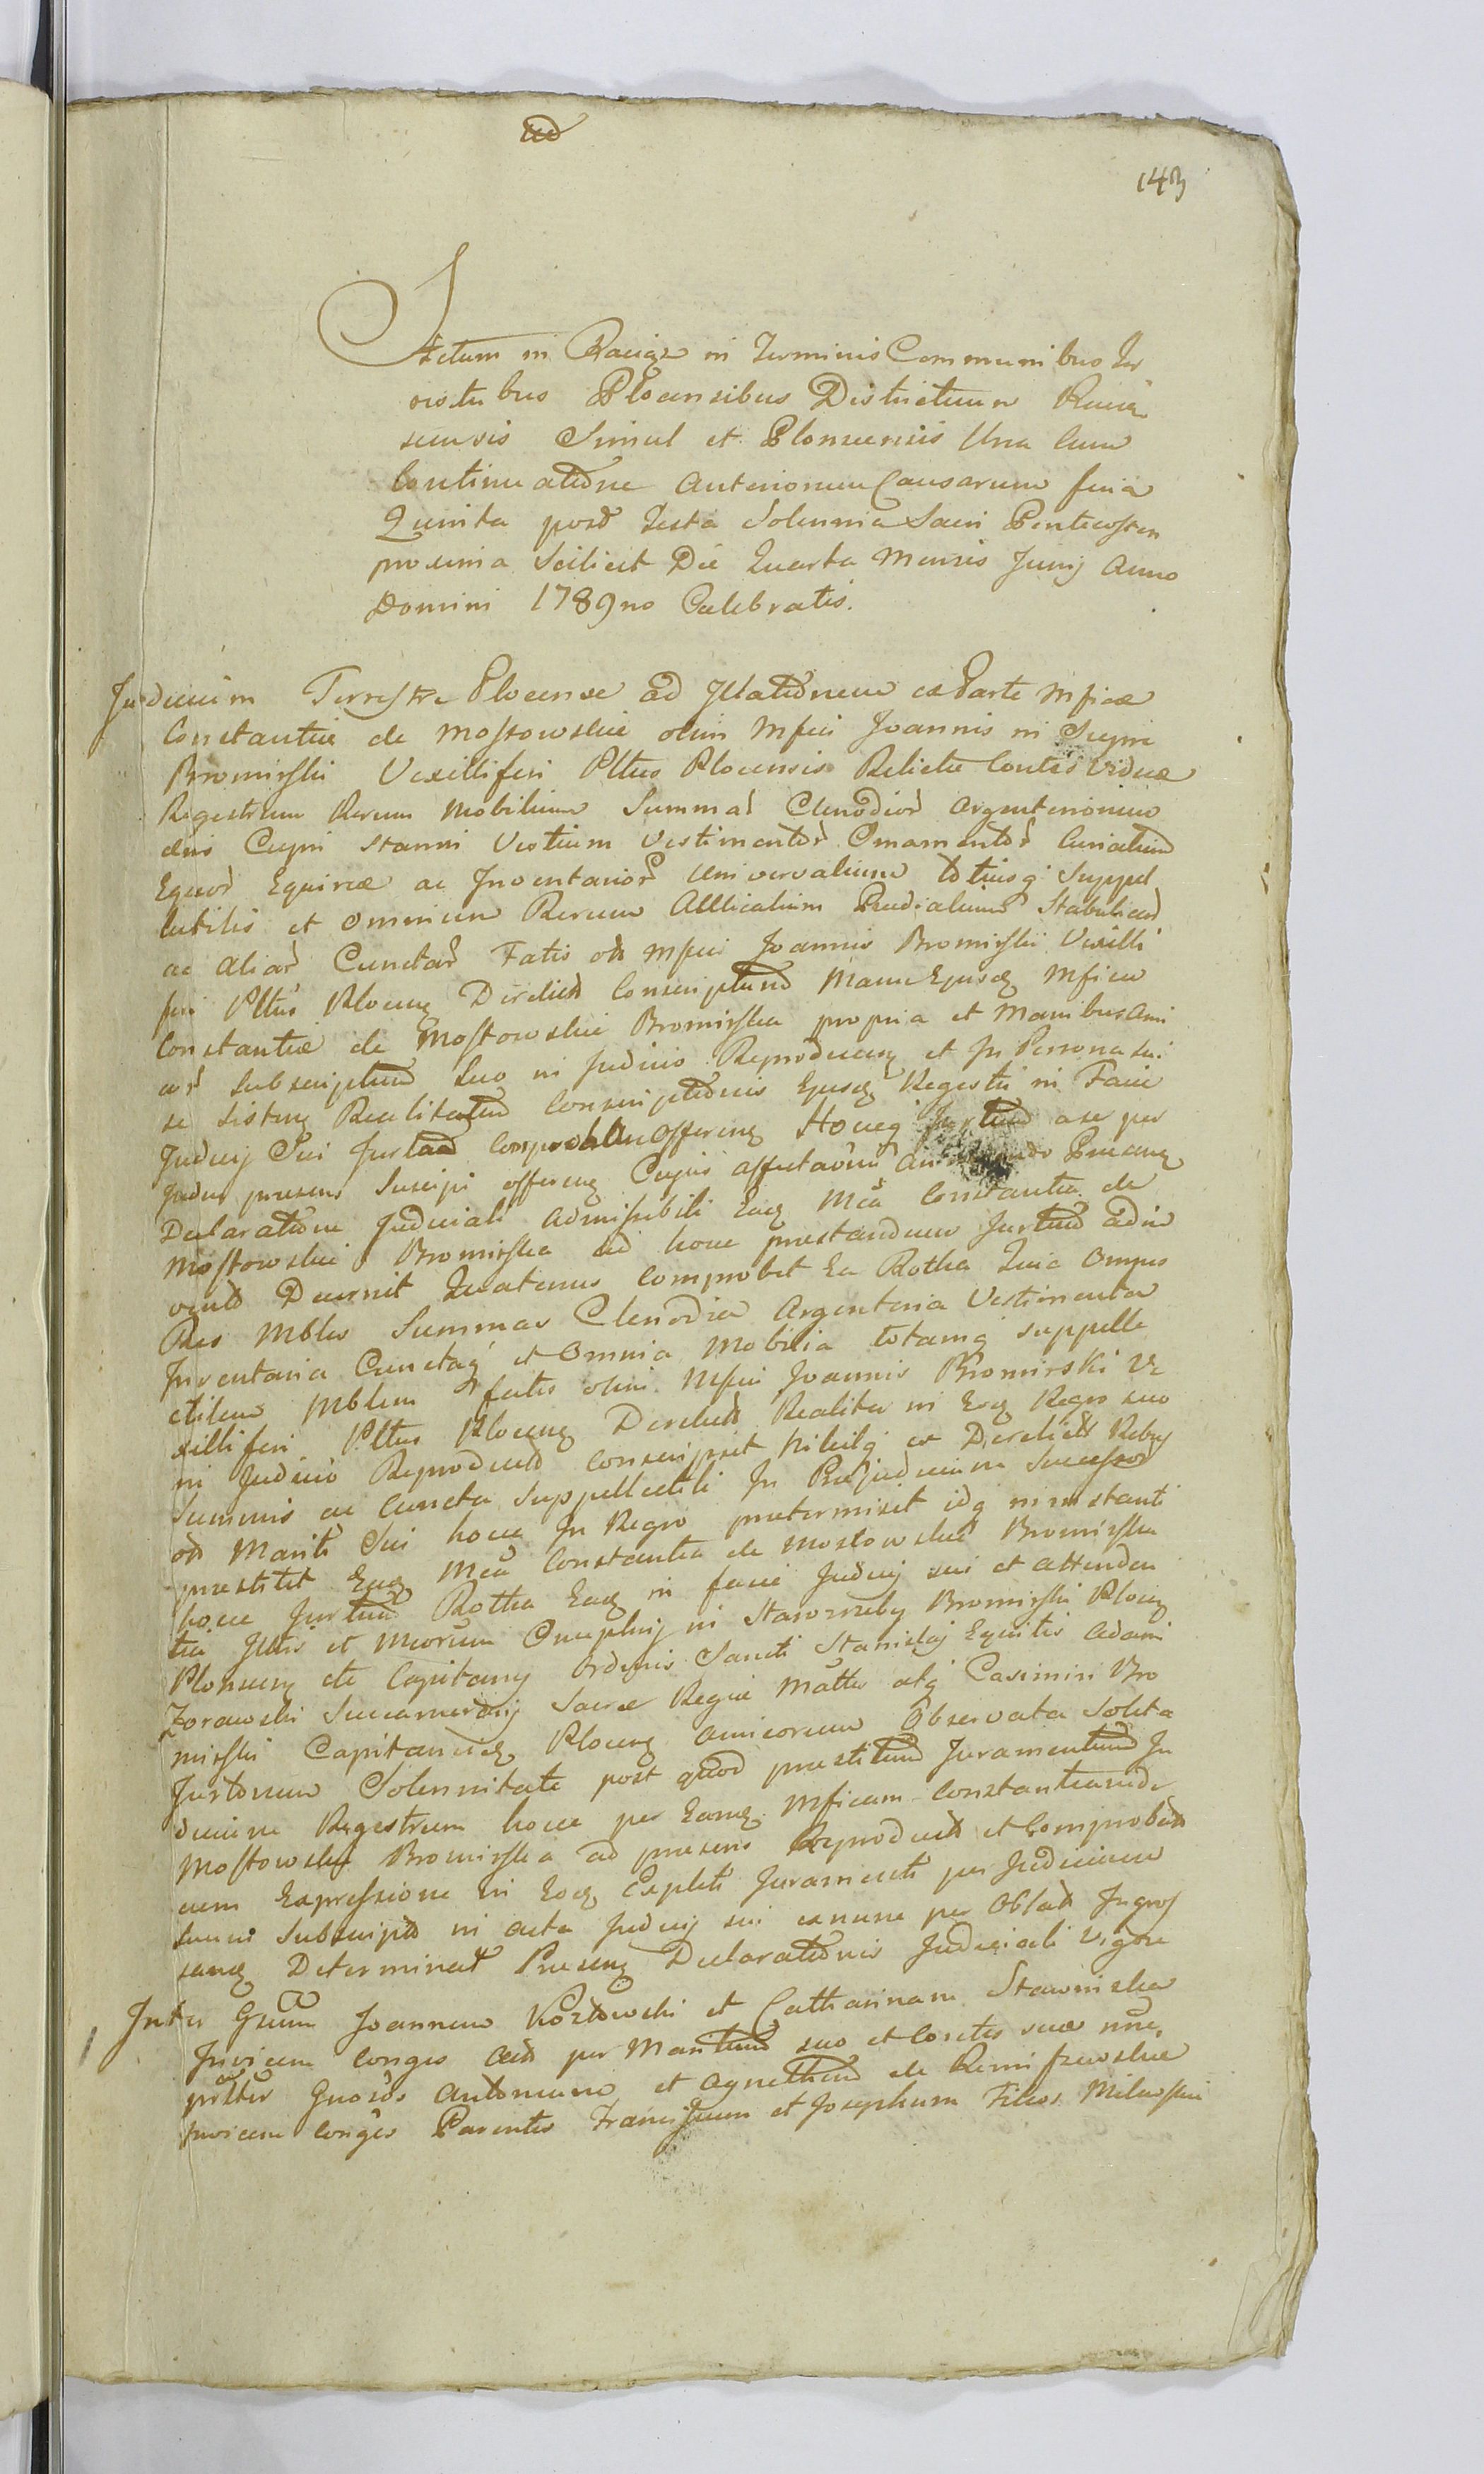 143
Actum in Raciąż in Terminis Communibus Ter
restribus Plocensibus Districtuum Raciąz
sensis Simul et Plonscensis Una Cum
Continuatione Anteriorum Causarum feria
Quinta post Festa Solennia Sacri Pentecosten
proxima Scilicet Die Quarta Mensis Junij Anno
Domini 1789no Celebratis.
Judicium Terrestre Plocense ad Illationem ex Parte Mficae
Constantiae de Mostowskie olim Mfici Joannis in Siepre
Bromirski Vexilliferi Pltus Plocensis Relictae Contis Viduae
Regestrum Rerum Mobilium Summar Clenodior Argenteriorum
aeris Cupri Stanni Vestium Vestimentor Ornamentor Curialium
Equor Equirae ac Inventarior Universalium totiusq Suppel
lectilis et omnium Rerum Allicalium Praedialium Stabuliend
ac aliar Cunctar Fatis ol Mfici Joannis Bromirski Vexilli
feri Pltus Plocen Derelict Conscriptum Manu Ejusd Mficae
Constantiae de Mostowskie Bromirska propria et Manibus Ami
cor Subscriptum Suo in Judicio Reproducen et In Persona sui
se Sisten Realitatem Conscriptionis Ejusd Regestri in Facie
Judicij Sui Jurtad comproban offeren Hocq Jurtum a se per
Judm praesens Suscipi offeren Cujus affectationi Praesen
Declaratione Judiciali Admissibili Ead Mca Constantia de
Mostowskie Bromirska ad hocce praestandum Jurtum adin
vent Decernit Quatenus Comprobet Ea Rotha Quia Omnes
Res Mbles Summas Clenodia Argenteria Vestimenta
Inventaria Cunctaq et Omnia Mobilia totamq suppelle
ctilem Mblem fatis olim Mfici Joannis Bromirski Ve
xilliferi Pltus Plocen Derelict Realiter in Eod Regro suo
in Judicio Reproduct conscripsit Nihilq ex Derelict Rebus
Summis ac Cuncta Suppellectili In Praejudicium Successor
ol Mariti Sui hocce In Regro praetermisit idq in instanti
praestitit Ead Mca Constantia de Mostowskie Bromirska
hocce Jurtum Rotha Ead in facie Judicij sui et Attenden
tia Illris et Mcorum Onuphrij in Staroźreby Bromirski Plocen
Plonscen etc Capitanej Ordinis Sancti Stanislaj Equitis Adami
Zorawski Succamerarij Sacrae Regiae Mattis atq Casimiri Bro
mirski Capitanid Plocen amicorum Observata Solita
Jurtorum Solennitate post quod praestitum Juramentum Ju
dicium Regestrum hocce per Eamd Mficam Constantiamde
Mostowskie Bromirska ad praesens Reproduct et Comprobat
cum Expressione in Eod Expleti Juramenti per Judicium
suum Subscript in acta Judicij sui ex nunc per Oblat Ingros
sand Determinat Praesen Declarationis Judiciali Vigore
Inter Gsum Joannem Kozłowski et Catharinam Stawiska
Invicem conges Act per Maritum suo et Contis suae nne
pritter Gnosos Antonium et Agnethem de
Invicem conges Parentes Franciscum et Josephum Filios Milewskie